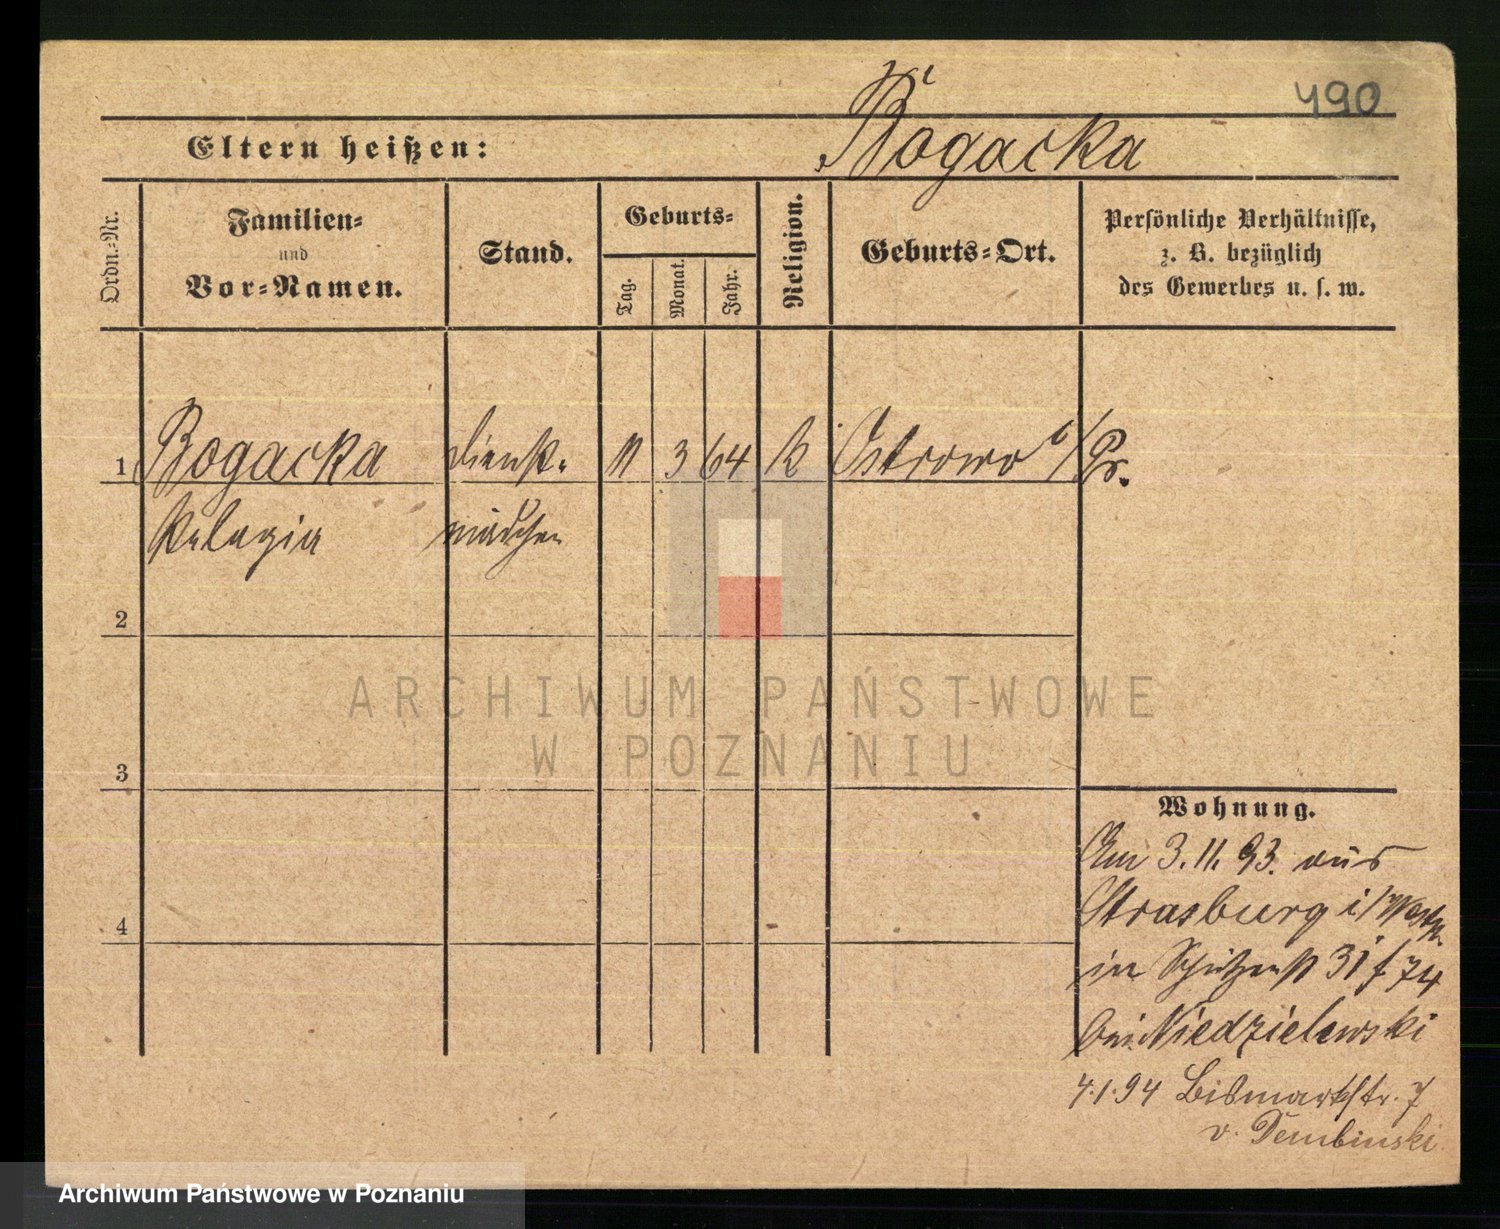 490
Bogacka
Eltern heißen:
Ordn.-Nr.
Familien-
und
Vor-Namen.
Stand.
Geburts-
Tag.
Monat.
Jahr.
Religion.
Geburts-Ort.
Persönliche Verhältnisse,
z. B. bezüglich
des Gewerbes u. s. w.
1 Bogacka Dienst- 11 3 64 k Ostrowo i/Pr.
Pelagia mädchen
2
3
4
ARCHIWUM PAŃSTWOWE
W POZNANIU
Wohnung.
Am 3.11.93. aus
Strasburg i/Westpr.
in Schützenstr 31 f 74
bei Niedzielewski
4.1.94 Bismarkstr. 7
v. Dembinski
Archiwum Państwowe w Poznaniu